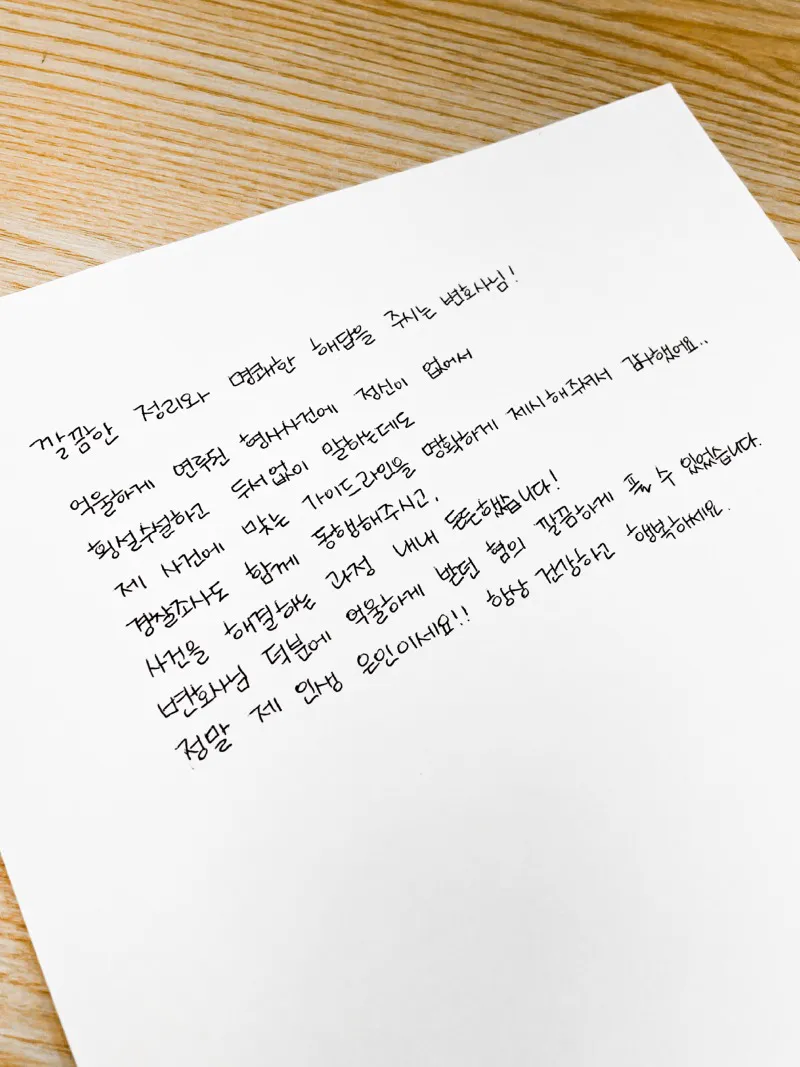 깔끔한 정리와 명쾌한 해답을 주시는 변호사님!
억울하게 연루된 형사사건에 정신이 없어서
횡설수설하고 두서없이 말하는데도
제 사건에 맞는 가이드라인을 명확하게 제시해주셔서 감사했어요..
경찰조사도 함께 동행해주시고,
사건을 해결하는 과정 내내 든든했습니다!
변호사님 덕분에 억울하게 받던 혐의 깔끔하게 풀 수 있었습니다.
정말 제 인생 은인이세요!! 항상 건강하고 행복하세요.